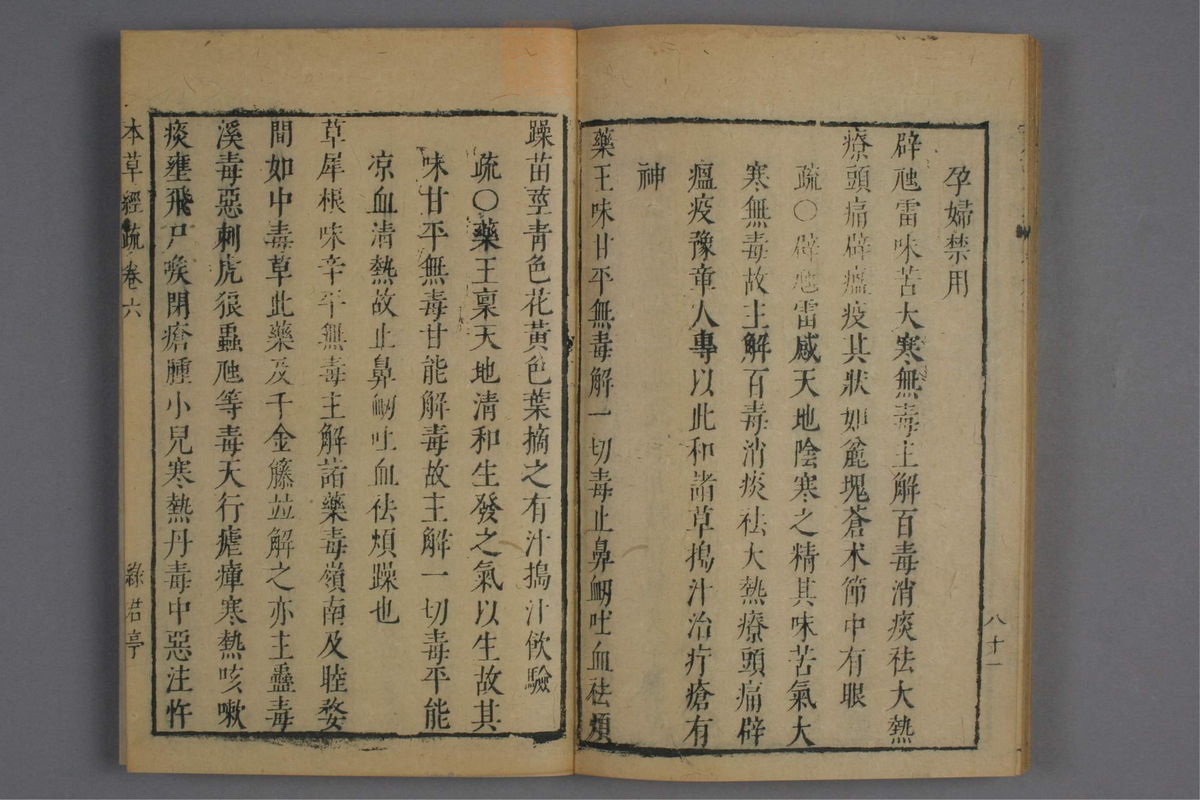 孕婦禁用
辟虺雷味苦大寒無毒主解百毒消痰祛大熱
療頭痛辟瘟疫其狀如麄塊蒼术節中有眼
疏〇辟虺雷感天地陰寒之精其味苦氣大
寒無毒故主解百毒消痰祛大熱療頭痛辟
瘟疫豫章人專以此和諸草搗汁治疔瘡有
神
藥王味甘平無毒解一切毒止鼻衂吐血祛煩
八十一
躁苗莖青色花黃色葉摘之有汁搗汁飲驗
疏〇藥王稟天地清和生發之氣以生故其
味甘平無毒甘能解毒故主解一切毒平能
凉血清熱故止鼻衂吐血祛煩躁也
草犀根味辛平無毒主解諸藥毒嶺南及睦婺
間如中毒草此藥及千金藤並解之亦主蠱毒
溪毒惡刺虎狼蟲虺等毒天行瘧瘴寒熱咳嗽
痰壅飛尸喉閉瘡腫小兒寒熱丹毒中惡注忤
本草經疏卷六
綠君亭